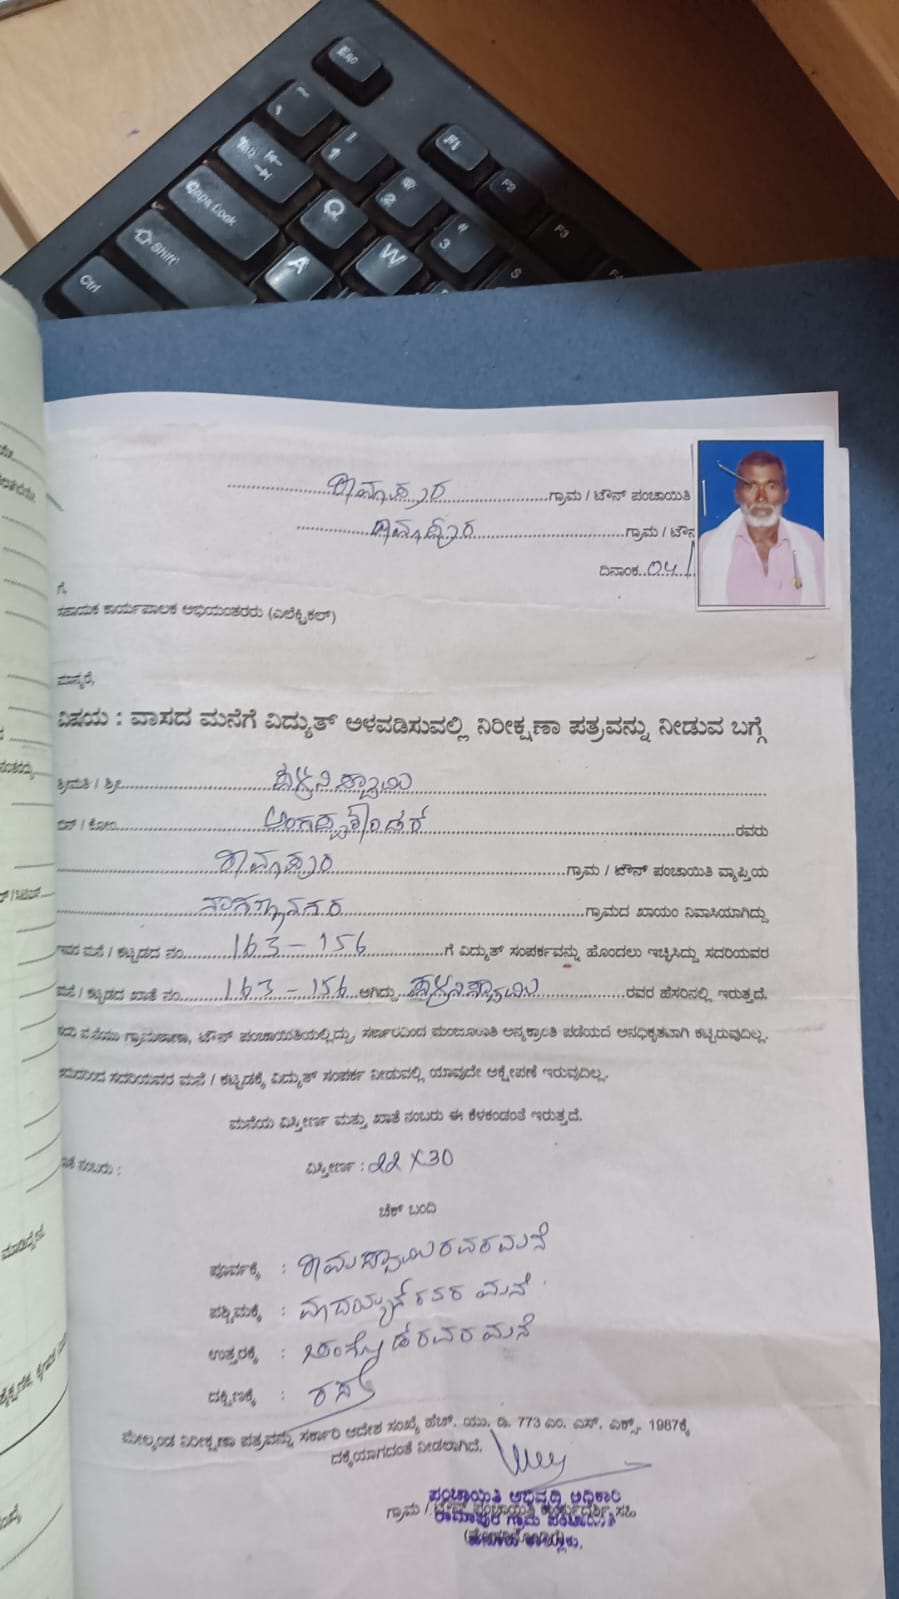 Esc
~
Tab
1
F1
F2
F3
Caps Lock
Q
2
Shift
A
W
3
Ctrl
S
ರಾಮಾಪುರ ಗ್ರಾಮ / ಟೌನ್ ಪಂಚಾಯಿತಿ
ರಾಮಾಪುರ ಗ್ರಾಮ / ಟೌನ್
ದಿನಾಂಕ 04/
ಗೆ,
ಸಹಾಯಕ ಕಾರ್ಯಪಾಲಕ ಅಭಿಯಂತರರು (ಎಲೆಕ್ಟ್ರಿಕಲ್)
ಮಾನ್ಯರೆ,
ವಿಷಯ : ವಾಸದ ಮನೆಗೆ ವಿದ್ಯುತ್ ಅಳವಡಿಸುವಲ್ಲಿ ನಿರೀಕ್ಷಣಾ ಪತ್ರವನ್ನು ನೀಡುವ ಬಗ್ಗೆ
ಶ್ರೀಮತಿ / ಶ್ರೀ ಪಳನಿಸ್ವಾಮಿ
ಬಿನ್ / ಕೋಂ ಅಂಗಪ್ಪಗೌಂಡರ್ ರವರು
ರಾಮಾಪುರ ಗ್ರಾಮ / ಟೌನ್ ಪಂಚಾಯಿತಿ ವ್ಯಾಪ್ತಿಯ
ನಾಗಣ್ಣನಗರ ಗ್ರಾಮದ ಖಾಯಂ ನಿವಾಸಿಯಾಗಿದ್ದು
ಇವರ ಮನೆ / ಕಟ್ಟಡದ ನಂ. 163-156 ಗೆ ವಿದ್ಯುತ್ ಸಂಪರ್ಕವನ್ನು ಹೊಂದಲು ಇಚ್ಛಿಸಿದ್ದು ಸದರಿಯವರ
ಮನೆ / ಕಟ್ಟಡದ ಖಾತೆ ನಂ. 163-156 ಆಗಿದ್ದು ಪಳನಿಸ್ವಾಮಿ ರವರ ಹೆಸರಿನಲ್ಲಿ ಇರುತ್ತದೆ.
ಸದರಿ ಮನೆಯು ಗ್ರಾಮಠಾಣಾ, ಟೌನ್ ಪಂಚಾಯಿತಿಯಲ್ಲಿದ್ದು, ಸರ್ಕಾರದಿಂದ ಮಂಜೂರಾತಿ ಅನ್ಯಕ್ರಾಂತಿ ಪಡೆಯದೆ ಅನಧಿಕೃತವಾಗಿ ಕಟ್ಟಿರುವುದಿಲ್ಲ.
ಆದುದರಿಂದ ಸದರಿಯವರ ಮನೆ / ಕಟ್ಟಡಕ್ಕೆ ವಿದ್ಯುತ್ ಸಂಪರ್ಕ ನೀಡುವಲ್ಲಿ ಯಾವುದೇ ಆಕ್ಷೇಪಣೆ ಇರುವುದಿಲ್ಲ.
ಮನೆಯ ವಿಸ್ತೀರ್ಣ ಮತ್ತು ಖಾತೆ ನಂಬರು ಈ ಕೆಳಕಂಡಂತೆ ಇರುತ್ತದೆ.
ಖಾತೆ ನಂಬರು : ವಿಸ್ತೀರ್ಣ : 22 X 30
ಚೆಕ್ ಬಂದಿ
ಪೂರ್ವಕ್ಕೆ : ರಾಮಸ್ವಾಮಿರವರಮನೆ
ಪಶ್ಚಿಮಕ್ಕೆ : ಮಾದಯ್ಯನ ರವರ ಮನೆ
ಉತ್ತರಕ್ಕೆ : ರವರ ಮನೆ
ದಕ್ಷಿಣಕ್ಕೆ : ರಸ್ತೆ
ಮೇಲ್ಕಂಡ ನಿರೀಕ್ಷಣಾ ಪತ್ರವನ್ನು ಸರ್ಕಾರಿ ಆದೇಶ ಸಂಖ್ಯೆ ಹೆಚ್. ಯು. ಡಿ. 773 ಎಂ. ಎನ್. ಎಕ್ಸ್. 1987ಕ್ಕೆ
ದಕ್ಕೆಯಾಗದಂತೆ ನೀಡಲಾಗಿದೆ.
ಪಂಚಾಯಿತಿ ಅಭಿವೃದ್ಧಿ ಅಧಿಕಾರಿ
ಗ್ರಾಮ / ಟೌನ್ ಪಂಚಾಯಿತಿ ಕಾರ್ಯದರ್ಶಿ ಸಹಿ
ರಾಮಾಪುರ ಗ್ರಾಮ ಪಂಚಾಯಿತಿ
ಹನೂರು ತಾಲ್ಲೂಕು.